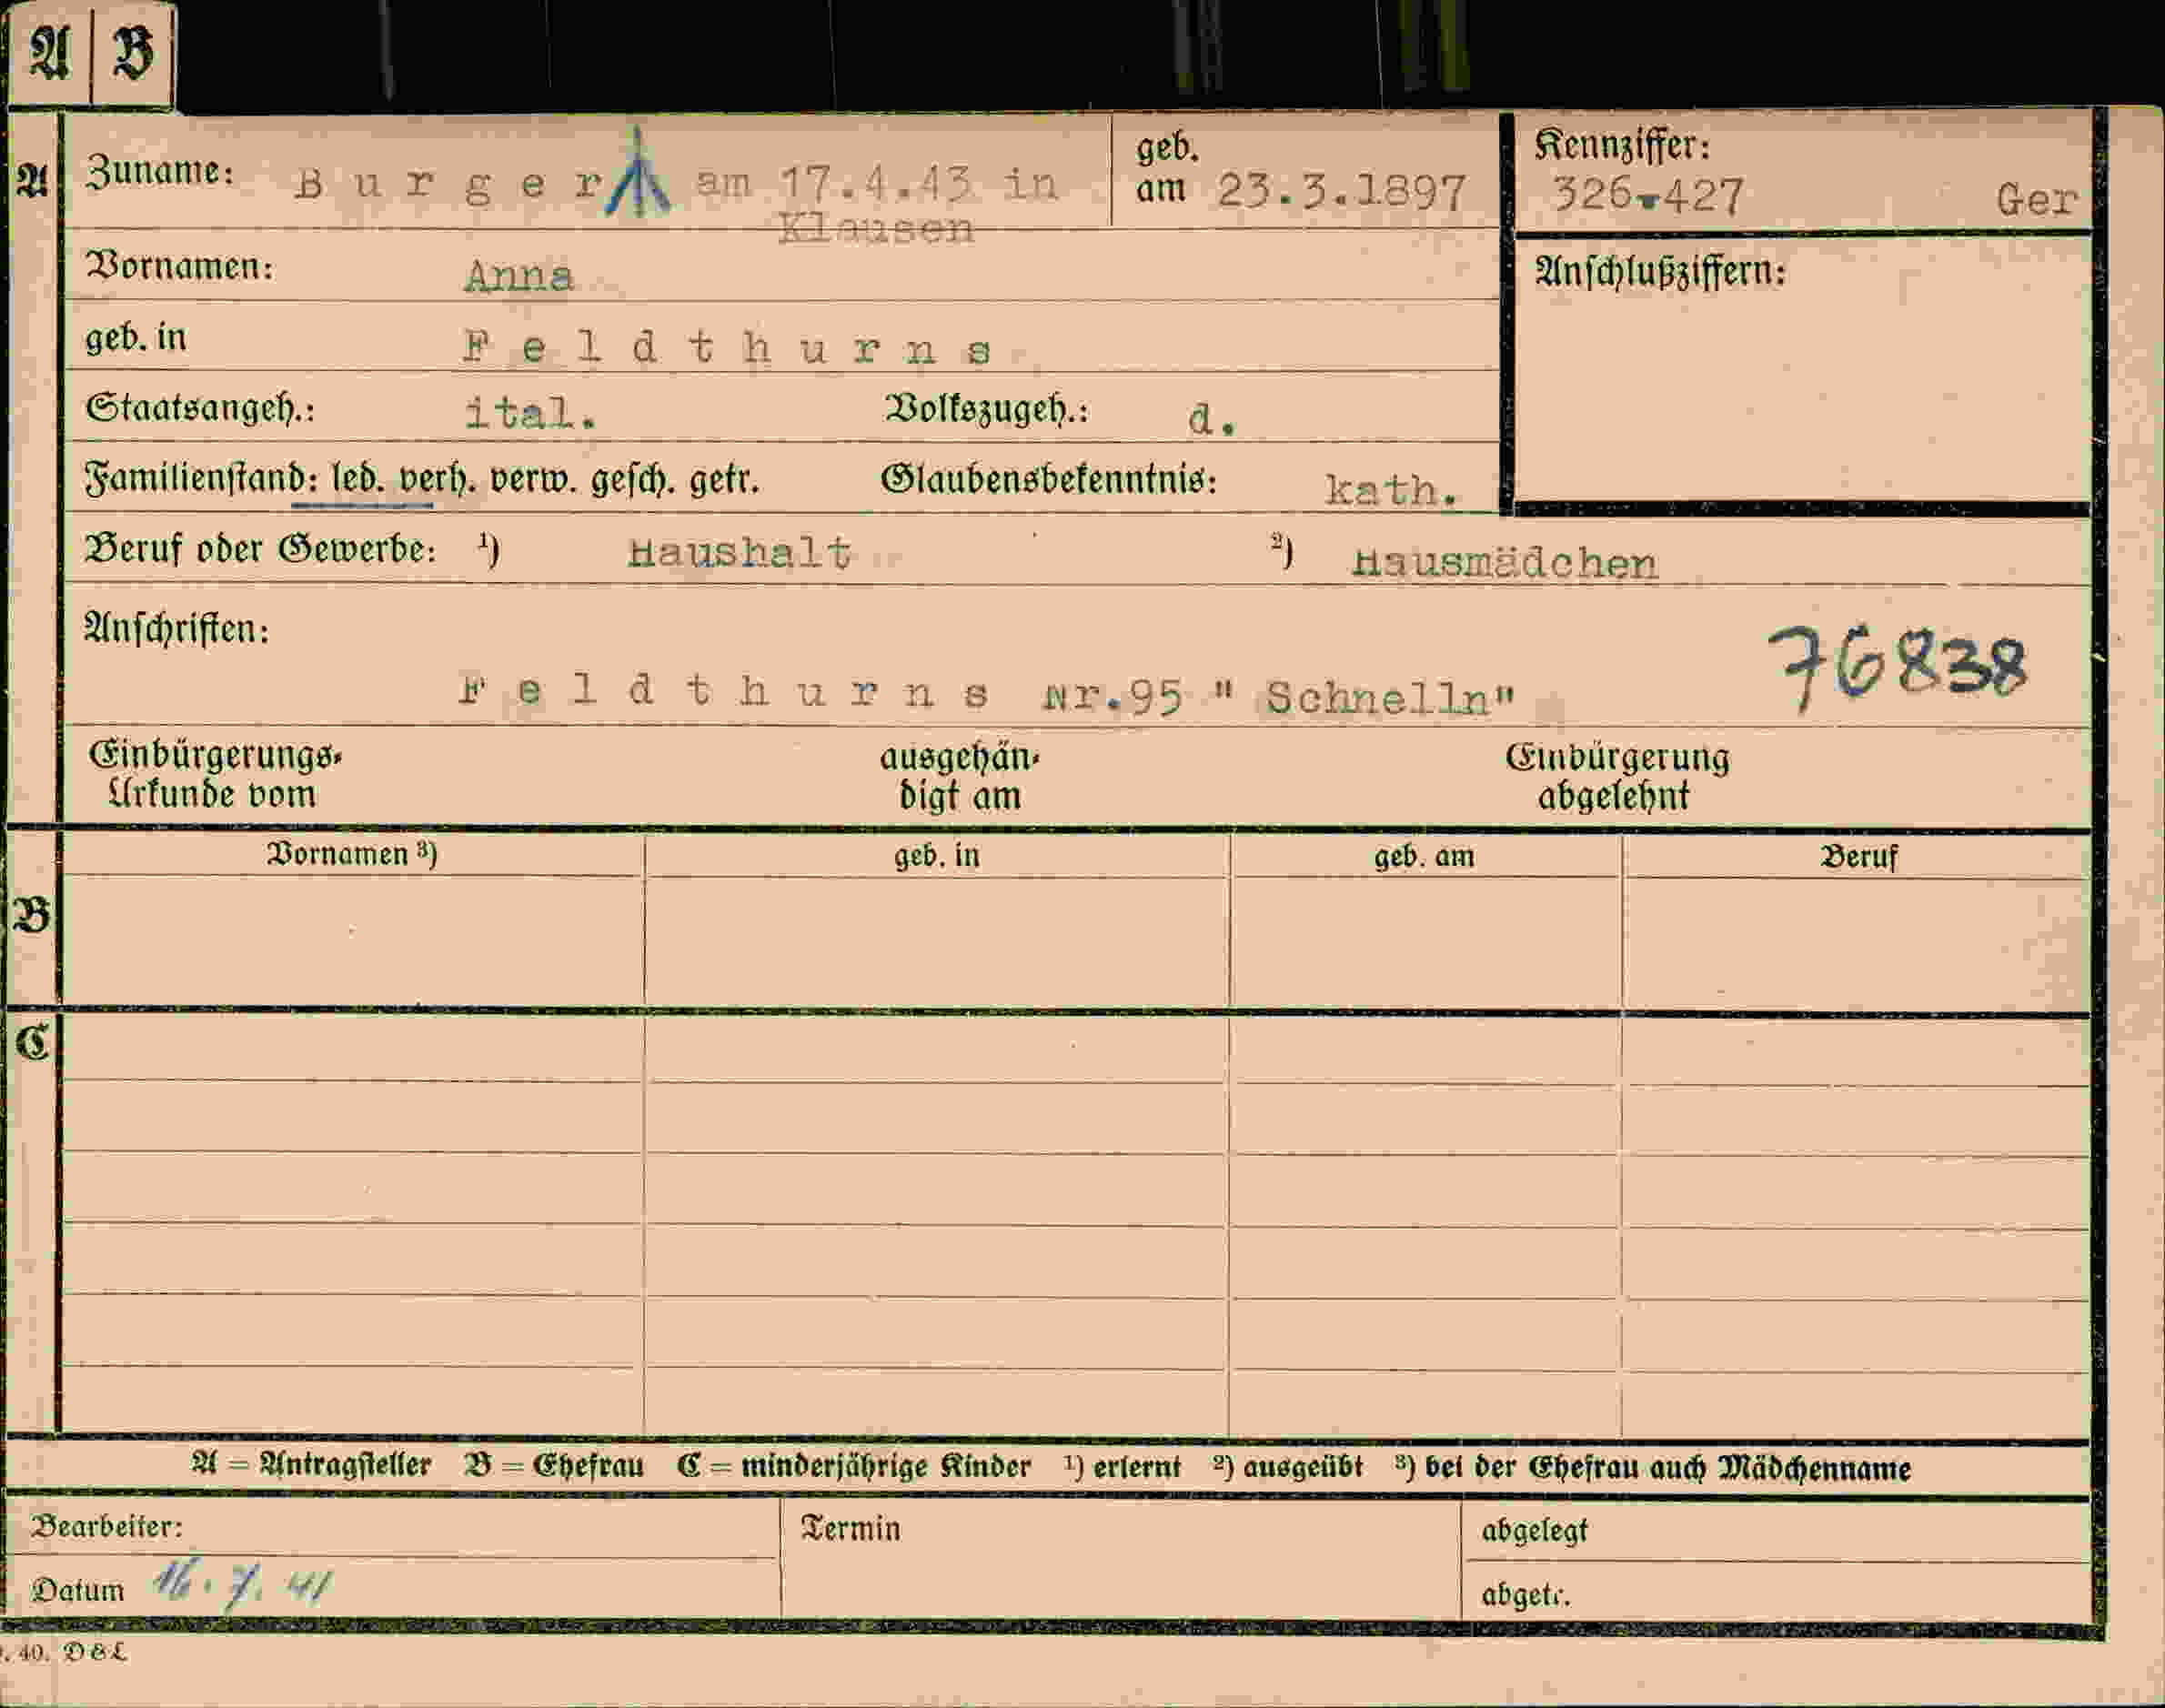 A B
A
Zuname: Burger ᛉ am 17.4.43 in
Klausen
geb.
am 23.3.1897
Kennziffer:
326-427 Ger
Vornamen: Anna
Anschlußziffern:
geb. in Feldthurns
Staatsangeh.: ital. Volkszugeh.: d.
Familienstand: led. verh. verw. gesch. getr. Glaubensbekenntnis: kath.
Beruf oder Gewerbe: ¹) Haushalt ²) Hausmädchen
Anschriften:
76838
Feldthurns Nr.95 " Schnelln"
Einbürgerungs-
Urkunde vom
ausgehän-
digt am
Einbürgerung
abgelehnt
B
Vornamen ³) geb. in geb. am Beruf
C
A = Antragsteller B = Ehefrau C = minderjährige Kinder ¹) erlernt ²) ausgeübt ³) bei der Ehefrau auch Mädchenname
Bearbeiter: Termin abgelegt
Datum 16.7.41 abgetr.
. 40. D&L